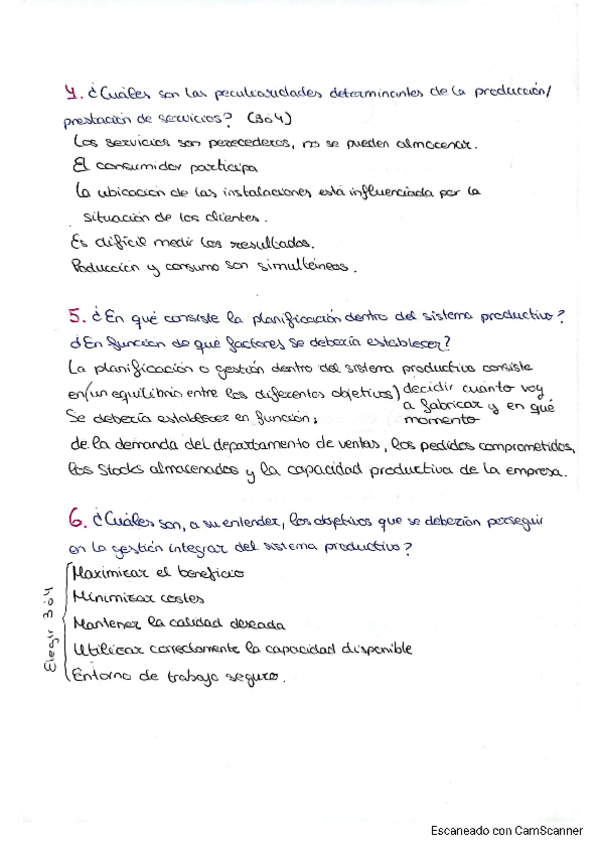 4. ¿Cuáles son las peculiaridades determinantes de la producción/
prestación de servicios? (3ó4)
Los servicios son perecederos, no se pueden almacenar.
El consumidor participa
La ubicación de las instalaciones está influenciada por la
situación de los clientes.
Es difícil medir los resultados.
Poducción y consumo son simultáneos.
5. ¿En qué consiste la planificación dentro del sistema productivo?
¿En función de qué factores se debería establecer?
La planificación o gestión dentro del sistema productivo consiste
en (un equilibrio entre los diferentes objetivos) decidir cuánto voy
a fabricar y en qué
momento
Se debería establecer en función:
de la demanda del departamento de ventas, los pedidos comprometidos,
los stocks almacenados y la capacidad productiva de la empresa.
6. ¿Cuáles son, a su entender, los objetivos que se deberían perseguir
en la gestión integrar del sistema productivo?
Elegir 3ó4
Maximizar el beneficio
Minimizar costes
Mantener la calidad deseada
Utilizar correctamente la capacidad disponible
Entorno de trabajo seguro.
Escaneado con CamScanner